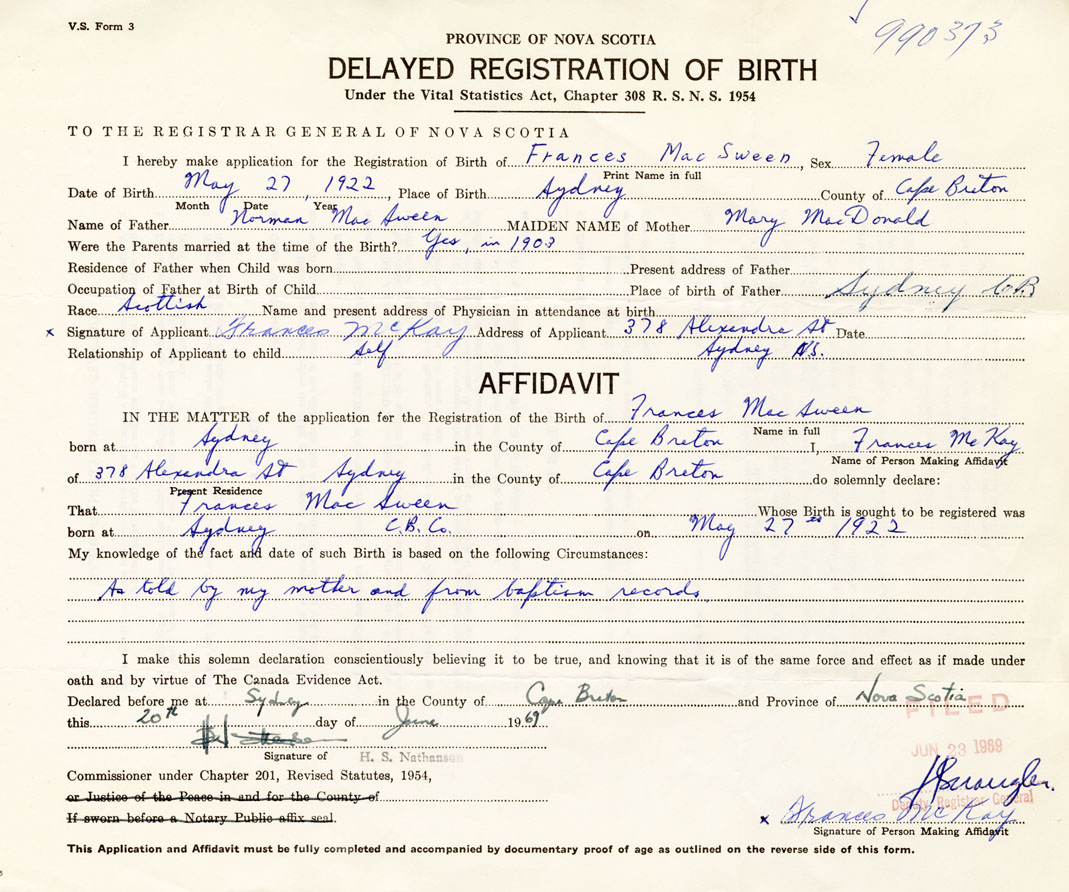 V.S. Form 3
990373
PROVINCE OF NOVA SCOTIA
DELAYED REGISTRATION OF BIRTH
Under the Vital Statistics Act, Chapter 308 R. S. N. S. 1954
TO THE REGISTRAR GENERAL OF NOVA SCOTIA
I hereby make application for the Registration of Birth of Frances Mac Sween, Sex Female
Print Name in full
Date of Birth May 27, 1922, Place of Birth Sydney County of Cape Breton
Month Date Year
Name of Father Norman Mac Sween MAIDEN NAME of Mother Mary MacDonald
Were the Parents married at the time of the Birth? Yes, in 1903
Residence of Father when Child was born Present address of Father
Occupation of Father at Birth of Child Place of birth of Father Sydney C.B
Race Scottish Name and present address of Physician in attendance at birth
x Signature of Applicant Frances McKay Address of Applicant 378 Alexandra St Date
Relationship of Applicant to child Self Sydney N.S.
AFFIDAVIT
IN THE MATTER of the application for the Registration of the Birth of Frances Mac Sween
Name in full
born at Sydney in the County of Cape Breton I, Frances McKay
Name of Person Making Affidavit
of 378 Alexandra St Sydney in the County of Cape Breton do solemnly declare:
Present Residence
That Frances Mac Sween Whose Birth is sought to be registered was
born at Sydney C.B. Co. on May 27th 1922
My knowledge of the fact and date of such Birth is based on the following Circumstances:
As told by my mother and from baptism records.
I make this solemn declaration conscientiously believing it to be true, and knowing that it is of the same force and effect as if made under
oath and by virtue of The Canada Evidence Act.
Declared before me at Sydney in the County of Cape Breton and Province of Nova Scotia
FILED
this 20th day of June 1969
JUN 23 1969
Signature of H. S. Nathanson
Commissioner under Chapter 201, Revised Statutes, 1954,
or Justice of the Peace in and for the County of
Deputy Registrar General
If sworn before a Notary Public affix seal.
x Frances McKay
Signature of Person Making Affidavit
This Application and Affidavit must be fully completed and accompanied by documentary proof of age as outlined on the reverse side of this form.